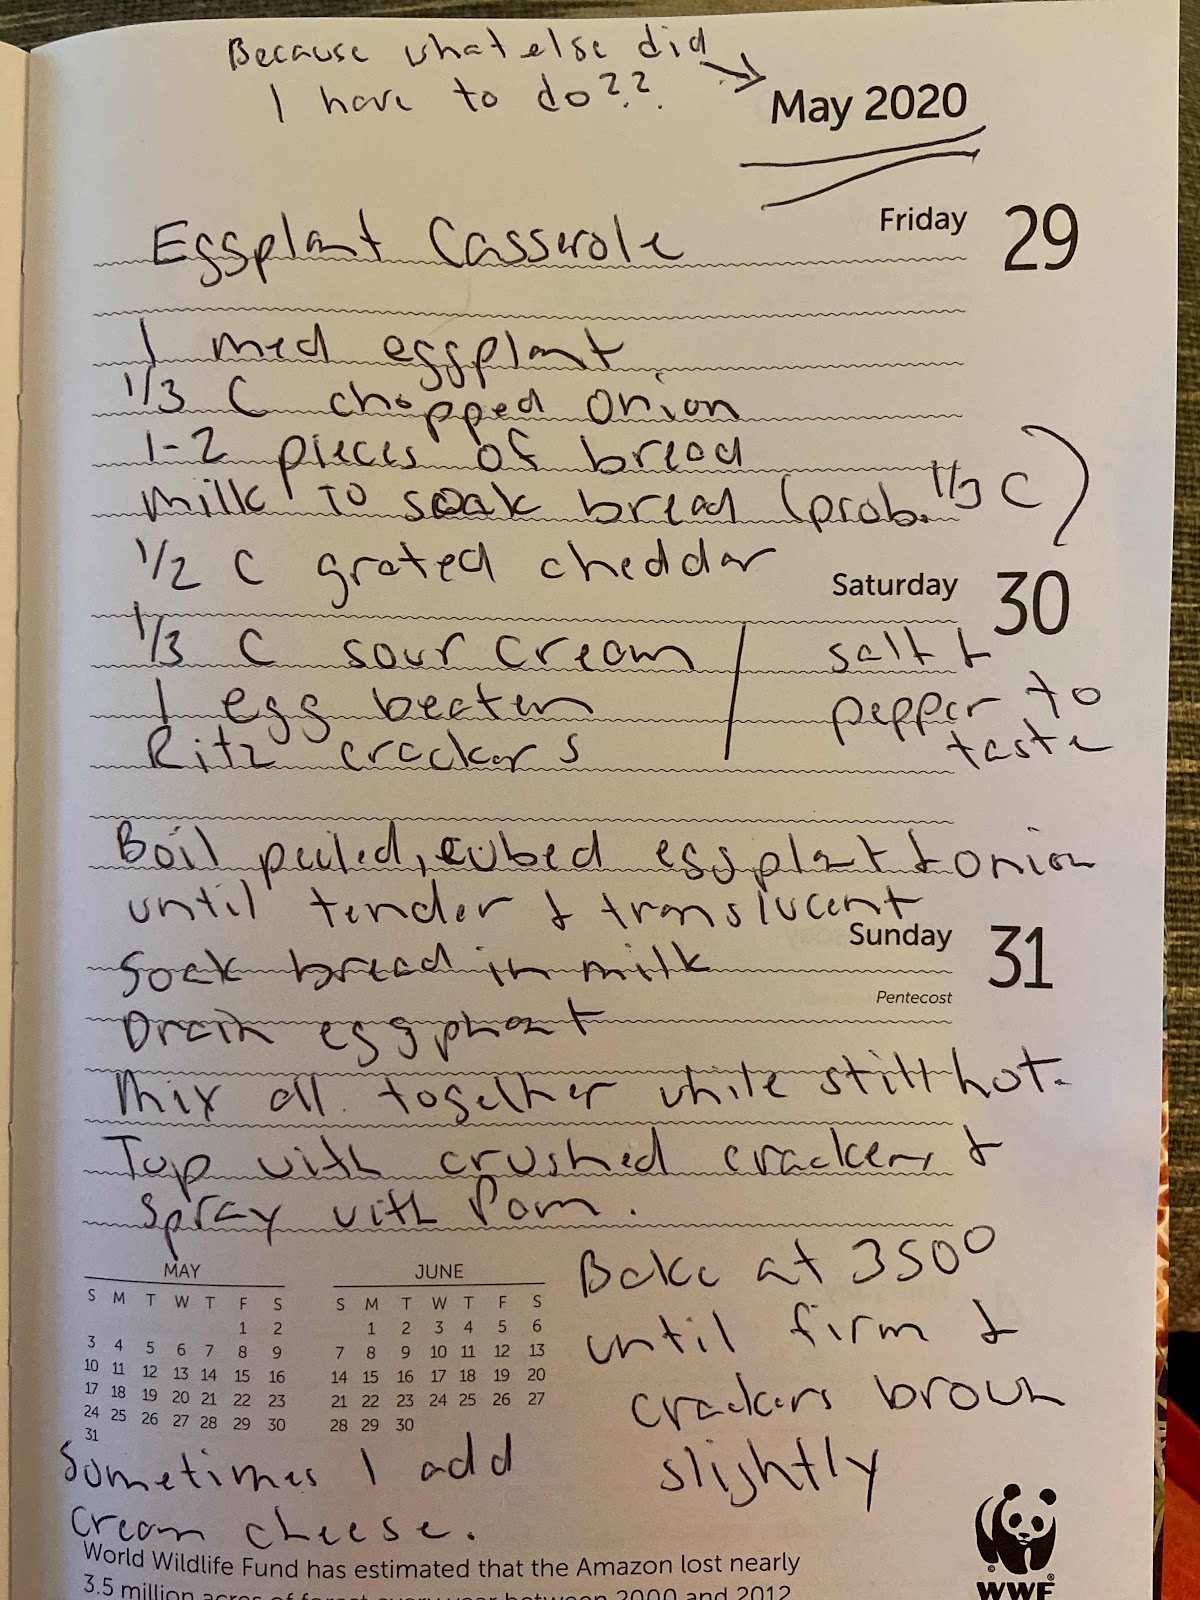 Because what else did
I have to do??
May 2020
Friday 29
Eggplant Casserole
1 med eggplant
1/3 C chopped onion
1-2 pieces of bread
milk to soak bread (prob. 1/3 C)
1/2 C grated cheddar
Saturday 30
1/3 C sour cream
1 egg beaten
Ritz crackers
salt &
pepper to
taste
Boil peeled, cubed eggplant & onion
until tender & translucent
Sunday 31
Soak bread in milk
Pentecost
Drain eggplant
Mix all together while still hot.
Top with crushed crackers &
spray with Pam.
Bake at 350°
until firm &
crackers brown
slightly
MAY
S M T W T F S
1 2
3 4 5 6 7 8 9
10 11 12 13 14 15 16
17 18 19 20 21 22 23
24 25 26 27 28 29 30
31
JUNE
S M T W T F S
1 2 3 4 5 6
7 8 9 10 11 12 13
14 15 16 17 18 19 20
21 22 23 24 25 26 27
28 29 30
Sometimes I add
cream cheese.
World Wildlife Fund has estimated that the Amazon lost nearly
3.5 million acres of forest every year between 2000 and 2012
WWF